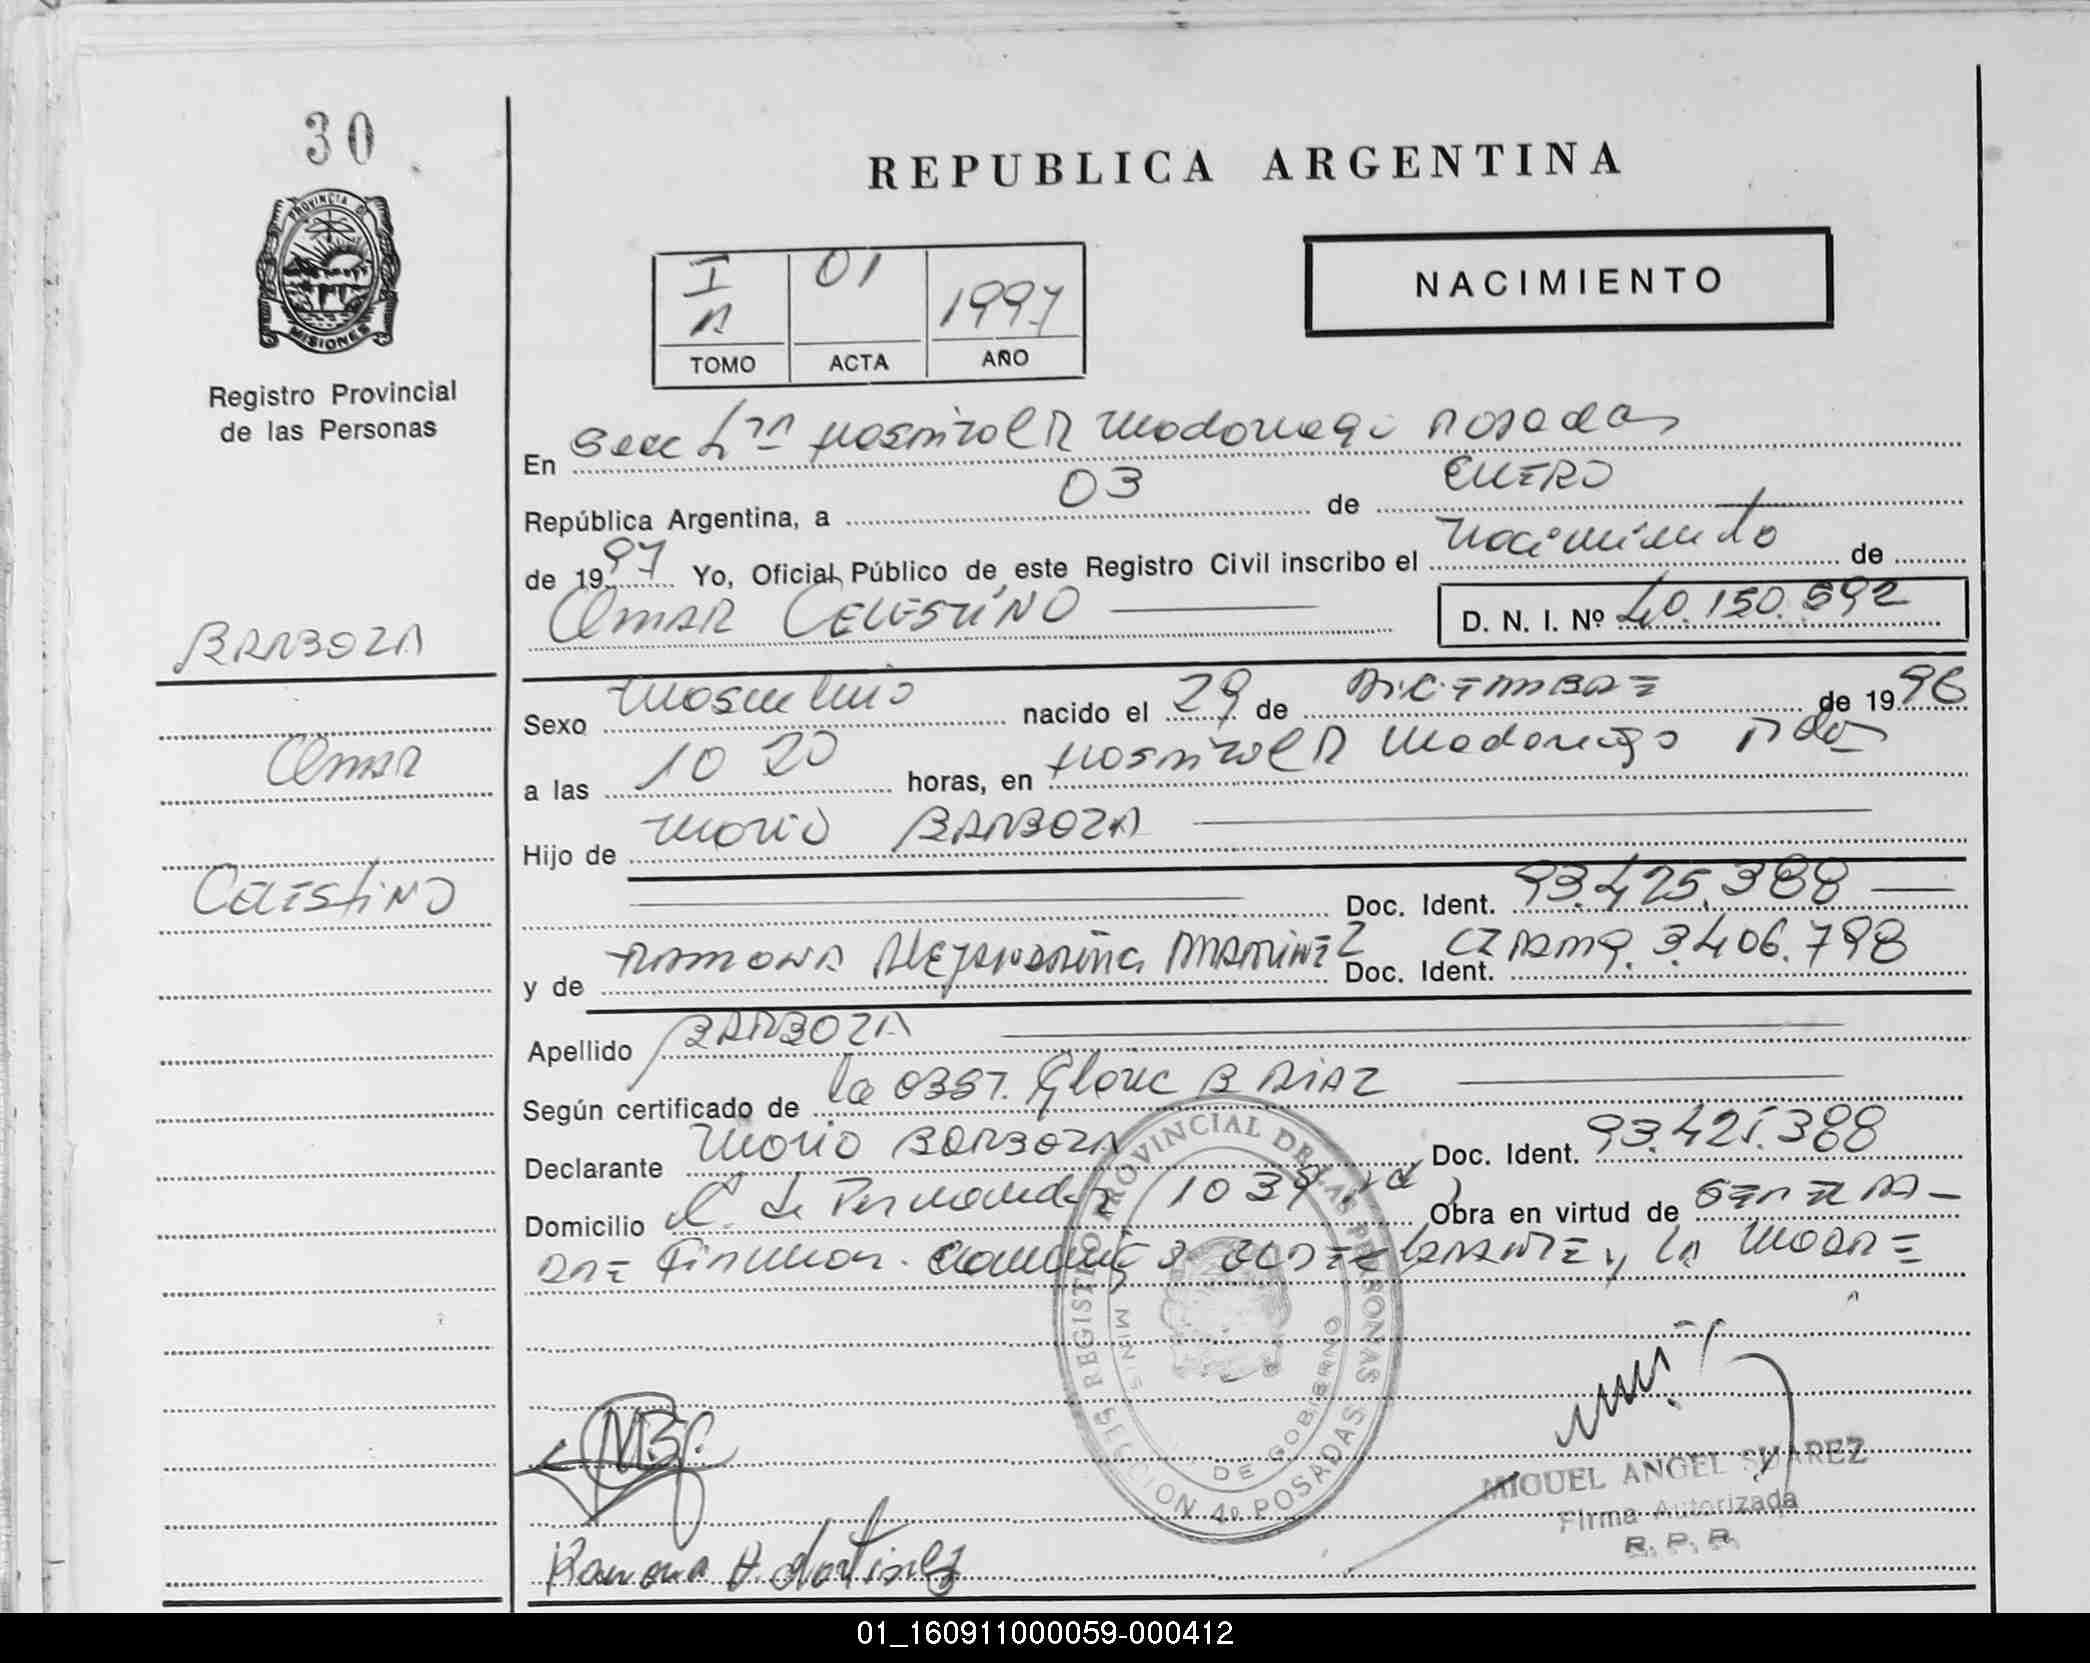 30
REPUBLICA ARGENTINA
PROVINCIA DE
MISIONES
Registro Provincial
de las Personas
NACIMIENTO
I 01 1997
TOMO ACTA AÑO
En Secc 4ta Hospital R Madariaga Posadas
República Argentina, a 03 de ENERO
de 1997 Yo, Oficial Público de este Registro Civil inscribo el Nacimiento de
OMAR CELESTINO D. N. I. Nº 40.150.592
BARBOZA
Sexo Masculino nacido el 29 de DICIEMBRE de 1996
Omar
a las 10 20 horas, en Hospital R Madariaga Pdas
Hijo de Mario BARBOZA
CELESTINO
Doc. Ident. 93.425.388
y de RAMONA Alejandrina MARTINEZ Doc. Ident. 3.406.798
Apellido BARBOZA
Según certificado de la OBST. Gloria B DIAZ
Declarante Mario BARBOZA Doc. Ident. 93.425.388
Domicilio C. de Fernandez 1039 Obra en virtud de SER EL PA-
DRE Firman el DECLARANTE y LA MADRE
REGISTRO PROVINCIAL DE LAS PERSONAS
DE GOBIERNO
SECCION 4º POSADAS
MBC
MIGUEL ANGEL SUAREZ
Firma Autorizada
R. P. P.
Ramona A. Martinez
01_160911000059-000412